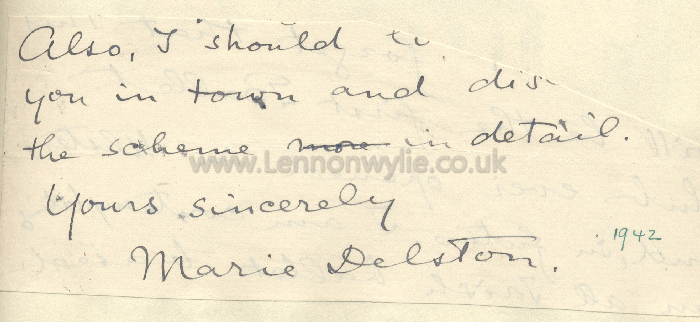 Also, I should
you in town and dis
the scheme more in detail.
www.Lennonwylie.co.uk
Yours sincerely
1942
Marie Delston.